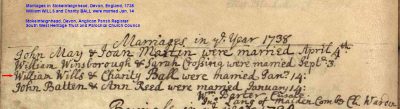 Marriages in Stokeinteignhead, Devon, England, 1738
William WILLS and Charity BALL were married Jan. 14
Stokeinteignhead, Devon, Anglican Parish Register
South West Heritage Trust and Parochial Church Council
Marriages in yᵉ Year 1738
John May & Joan Martin were married April 4th
William Winsborough & Syrah Crosing were married Septr 3
William Wills & Charity Ball were married Janry 14:
John Batten & Ann Reed were married January 14:
Wm Barter Curate
Lang of Maiden Comb Ch. Warden